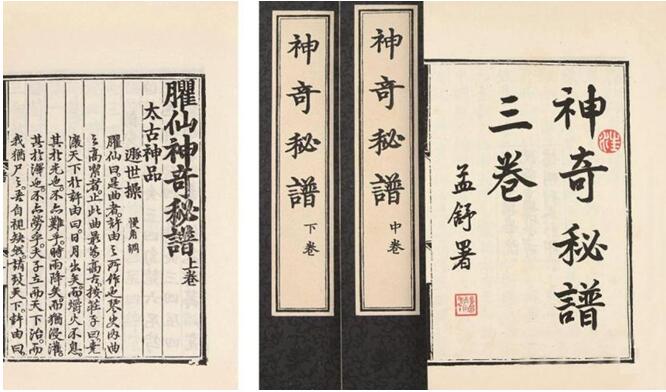 臞仙神奇秘譜上卷
太古神品
遯世操 慢角調
臞仙曰是曲者許由之所作也琴史內曲
之高者止此曲最為高古按莊子曰堯
讓天下於許由曰日月出矣而爝火不息
其於光也不亦難乎時雨降矣而猶浸灌
其於澤也不亦勞乎夫子立而天下治而
我猶尸之吾自視缺然請致天下許由曰
神奇秘譜
三卷
孟舒署
神奇秘譜 中卷
神奇秘譜 下卷